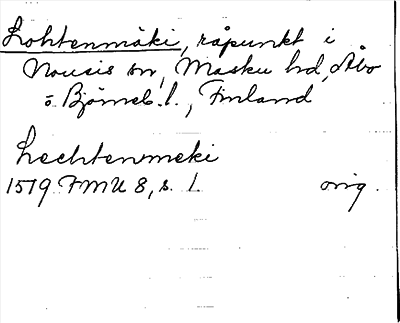 Lohtenmäki, råpunkt i
Nousis sn, Masku hd, Åbo
o. Björneb. l., Finland
Lechtenmeki
1519 FMU 8, s. 1 orig.